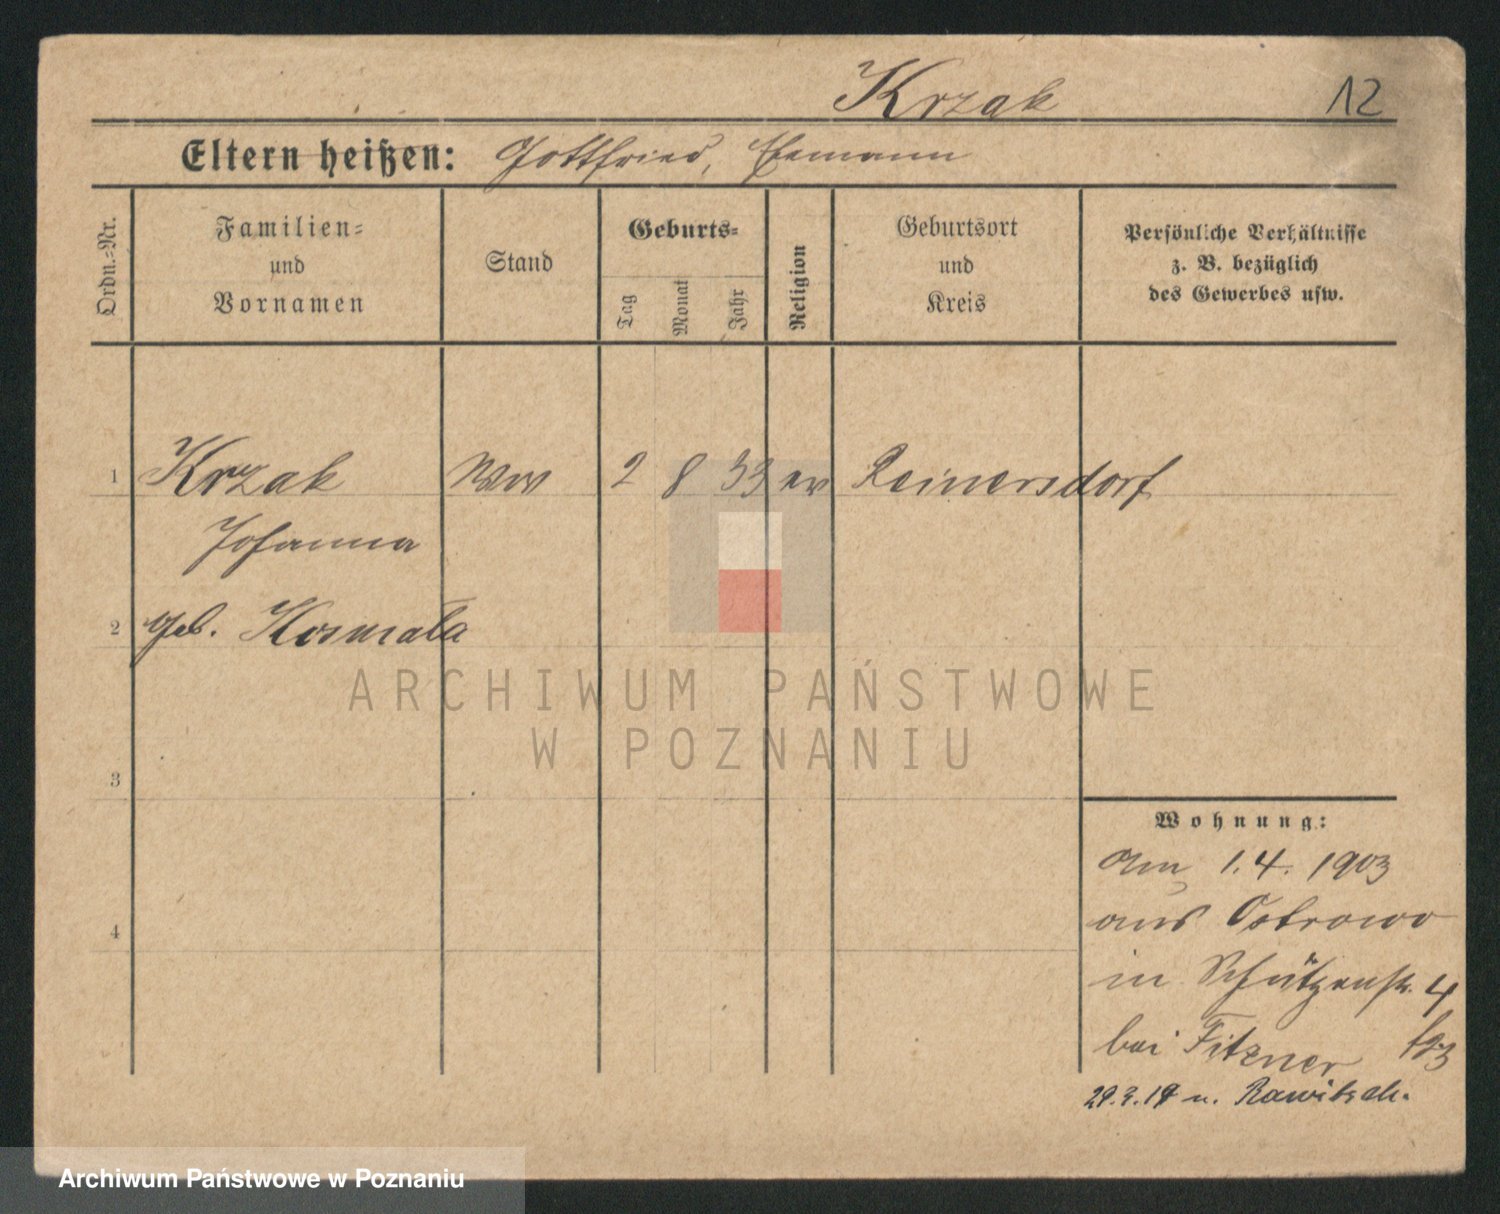 Krzak 12
Eltern heißen: Gottfried,
Ordn.-Nr.
Familien-
und
Vornamen
Stand
Geburts-
Tag
Monat
Jahr
Religion
Geburtsort
und
Kreis
Persönliche Verhältnisse
z. B. bezüglich
des Gewerbes usw.
1 Krzak Ww 2 8 33 ev Reinersdorf
Johanna
2 geb. Kosmala
ARCHIWUM PAŃSTWOWE
W POZNANIU
3
Wohnung:
am 1.4.1903
4
aus Ostrowo
in Schützenstr. 4
bei Fitzner
29.3.19 n. Rawitsch.
Archiwum Państwowe w Poznaniu